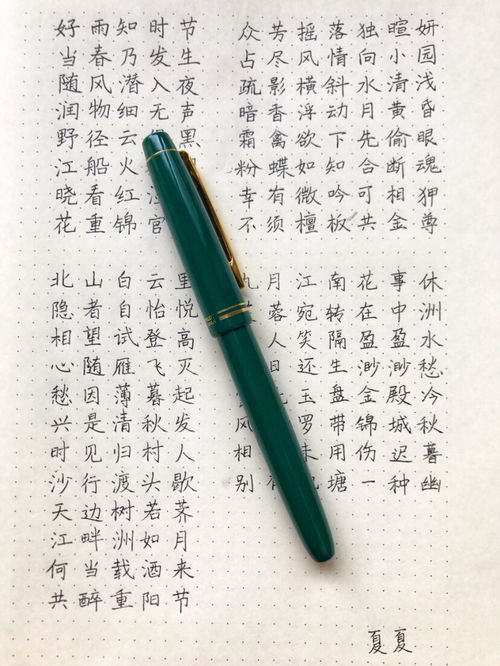 好雨知时节
当春乃发生
随风潜入夜
润物细无声
野径云黑
江船火
晓看红
花重锦官
众芳摇落独暄妍
占尽风情向小园
疏影横斜水清浅
暗香浮动月黄昏
霜禽欲下先偷眼
粉蝶如知合断魂
幸有微吟可相狎
不须檀板共金尊
北山白云里
隐者自怡悦
相望试登高
心随雁飞灭
愁因薄暮起
兴是清秋发
时见归村人
沙行渡头歇
天边树若荠
江畔洲如月
何当载酒来
共醉重阳节
九月江南花事休
蓉宛转在中洲
人笑隔盈盈水
日还生渺渺愁
玉盘金殿冷
风罗带锦城秋
相未用伤迟暮
别塘一种幽
夏夏